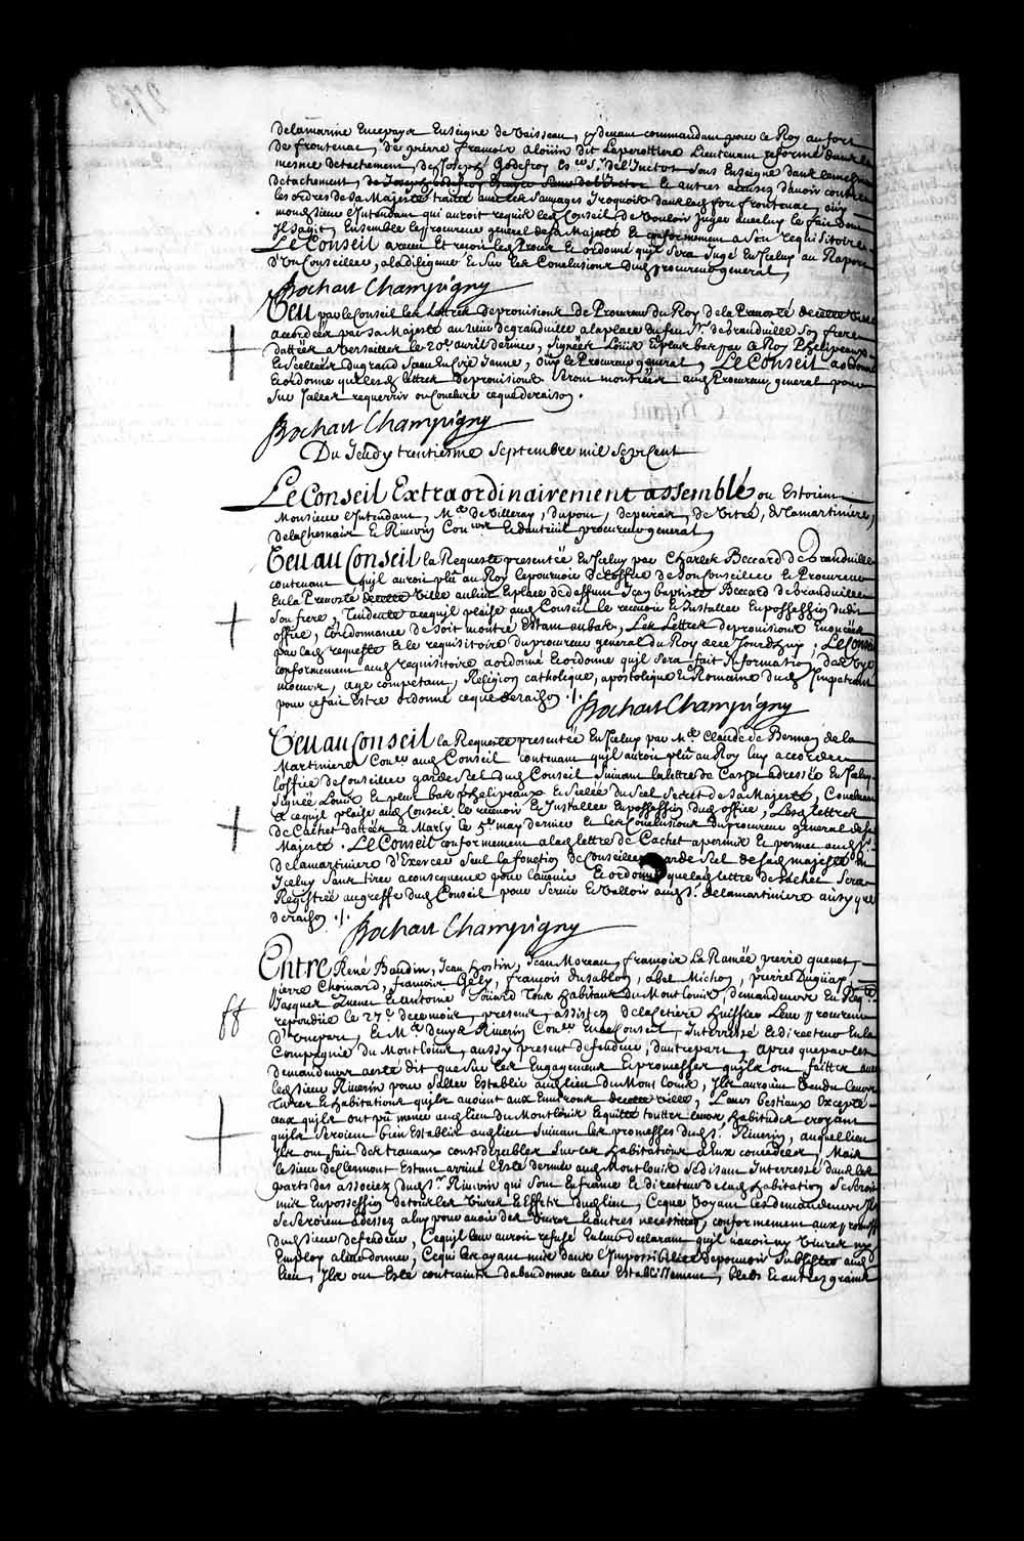 delamarine En ce pays Enseigne de Vaisseau, cydevant commandant pour ce Roy au fort
de frontenac, de pierre francois alouin dit Laperottiere Lieutenant reformé dans le
mesme detachement, de Joseph Godefroy Esc.er S.r del'Inctot sous Enseigne dans le mesme
detachement, de Joseph Godefroy Escuyer Sieur del'Inctot et autres accusez d'avoir contre
les ordres de Sa Majesté traitté avec les Sauvages Iroquois dans led. fort frontenac, ouy
monsieur l'Intendant qui auroit requis led. Conseil de Vouloir Juger avec luy le fait dont
Il s'agit, Ensemble le procureur general de sa Majesté et conformement a Son requisitoire
Le Conseil a receu et reçoit led. Procez et ordonne qu'il Sera Jugé En Iceluy au Raport
d'Un Conseiller, a la diligence et Sur les Conclusions dud. procureur general,
Bochart Champigny
Veu par le Conseil les Lettres de provisions de Procureur du Roy de la Prevosté de cette Ville
accordées par sa Majesté au sieur de granville a la place du feu S.r de branville Son frere
dattées a Versailles le 20e avril dernier, Signées Louis Et plus bas par le Roy Phelipeaux
et Scellées du grand Sceau En Cire Jaune, Ouy le Procureur general, Le Conseil a ordonné
et ordonne que lesd. lettres de provisions Seront montrées aud. Procureur general pour
Sur Icelles requerir ou Conclure ce que de raison.
Bochart Champigny
Du Jeudy trentiesme Septembre mil Sept Cent
Le Conseil Extraordinairement assemblé ou Estoient
Monsieur l'Intendant, M.es de Villeray, dupont, depeiras, de Vitré, de Lamartiniere,
de la chesnais et Riverin Con.ers et d'auteuil procureur general,
Veu au Conseil la Requeste presentée En Iceluy par Charles Beccard de Granville
contenant qu'il auroit plû au Roy le pourvoir de l'office de Son Conseiller et Procureur
En la Prevosté de cette Ville au lieu et place de deffunt Jean baptiste Beccard de branville
Son frere, Tendante a ce qu'il plaise aud. Conseil le recevoir et Installer En possession dud.
office, l'ordonnance de Soit montré Estant au bas, Les Lettres de provisions Enoncées
par lad. requeste et le requisitoire du procureur general du Roy de ce Jourd'huy; Le Conseil
conformement aud. requisitoire a ordonné et ordonne qu'il Sera fait Information des Vye
moeurs, age competant, Religion catholique, apostolique et Romaine dud. Impetrant
pour ce fait Estre ordonné ce que de raison ./.
Bochart Champigny
Veu au Conseil la Requeste presentée En Iceluy par M.e Claude de Bermen de la
Martiniere Con.er aud. Conseil contenant qu'il auroit plû au Roy luy accorder
l'office de Conseiller garde Scel dud. Conseil Suivant la lettre de Cachet adressée En Iceluy
Signée Louis et plus bas phelipeaux et Scellée du Scel Secret de Sa Majesté, Concluant
a ce qu'il plaise aud. Conseil le recevoir et Installer En possession dud. office, Lesd. lettres
de Cachet dattées a Marly le 5.e may dernier et les Conclusions du procureur general de Sa
Majesté. Le Conseil conformement a lad. lettre de Cachet a permis et permet aud. S.r
de lamartiniere d'Exercer Seul la fonction de Conseiller garde Scel de sad. majesté En
Iceluy Sans tirer a consequence pour l'avenir et ordonne que lad. lettre de Cachet Sera
Registrée au greffe dud. Conseil pour Servir et Valloir aud. S.r delamartiniere ainsy que
de raison ./.
Bochart Champigny
Entre René Baudin, Jean hostin, Jean Moreau, françois La Ramée, pierre quenet,
pierre Choinard, françois Gely, françois dusablon, abel Michon, pierre Dugüas,
Jacques Zuenel et antoine Soüard Tous habitans du Mont Louis, demandeurs En Req.te
repondüe le 27.e de ce mois, presens, assistez de la Cetiere huissier Leur procureur
D'une part, Et M.e denys Riverin Con.er En ce Conseil, Interressé et directeur En la
Compagnie du Mont Louis, aussy present deffendeur, d'autre part, apres que par les
demandeurs a esté dit que Sur les Engagemens et promesses qu'ils ont faittes avec
led. sieur Riverin pour S'aller Establir aud. lieu du Mont Louis, Ils auroient Vendu leurs
Terres et habitations qu'ils avoient aux Environs de cette ville, Leurs bestiaux Excepté
ceux qu'ils ont pû mener aud. lieu du Mont Louis et quitté toutes leurs habitudes croyant
qu'ils Seroient bien Establis aud. lieu Suivant les promesses dud. S.r Riverin, auquel lieu
Ils ont fait des travaux considerables Sur les habitations a Eux concedées, Mais
le sieur de Clermont Estant arrivé l'Esté dernier aud. Mont Louis Se disant Interressé dans les
parts des associez dud. S.r Riverin qui sont En france et directeur de lad. habitation Se Seroit
mis En possession de tous les Vivres et Effets dud. lieu, Ce que Voyant les demandeurs Ils
Se Seroient adressez a luy pour avoir des Vivres et autres necessitez, conformement aux promesses
dud. sieur deffendeur, Ce qu'il leur auroit refusé En leur declarant qu'il n'avoit ny Vivres ny
Employ a leur donner, Ce qui les ayant mis dans l'Impossibilité de pouvoir Subsister aud.
lieu, Ils ont Esté contraints d'abandonner leur Establissement, bleds et autres grains